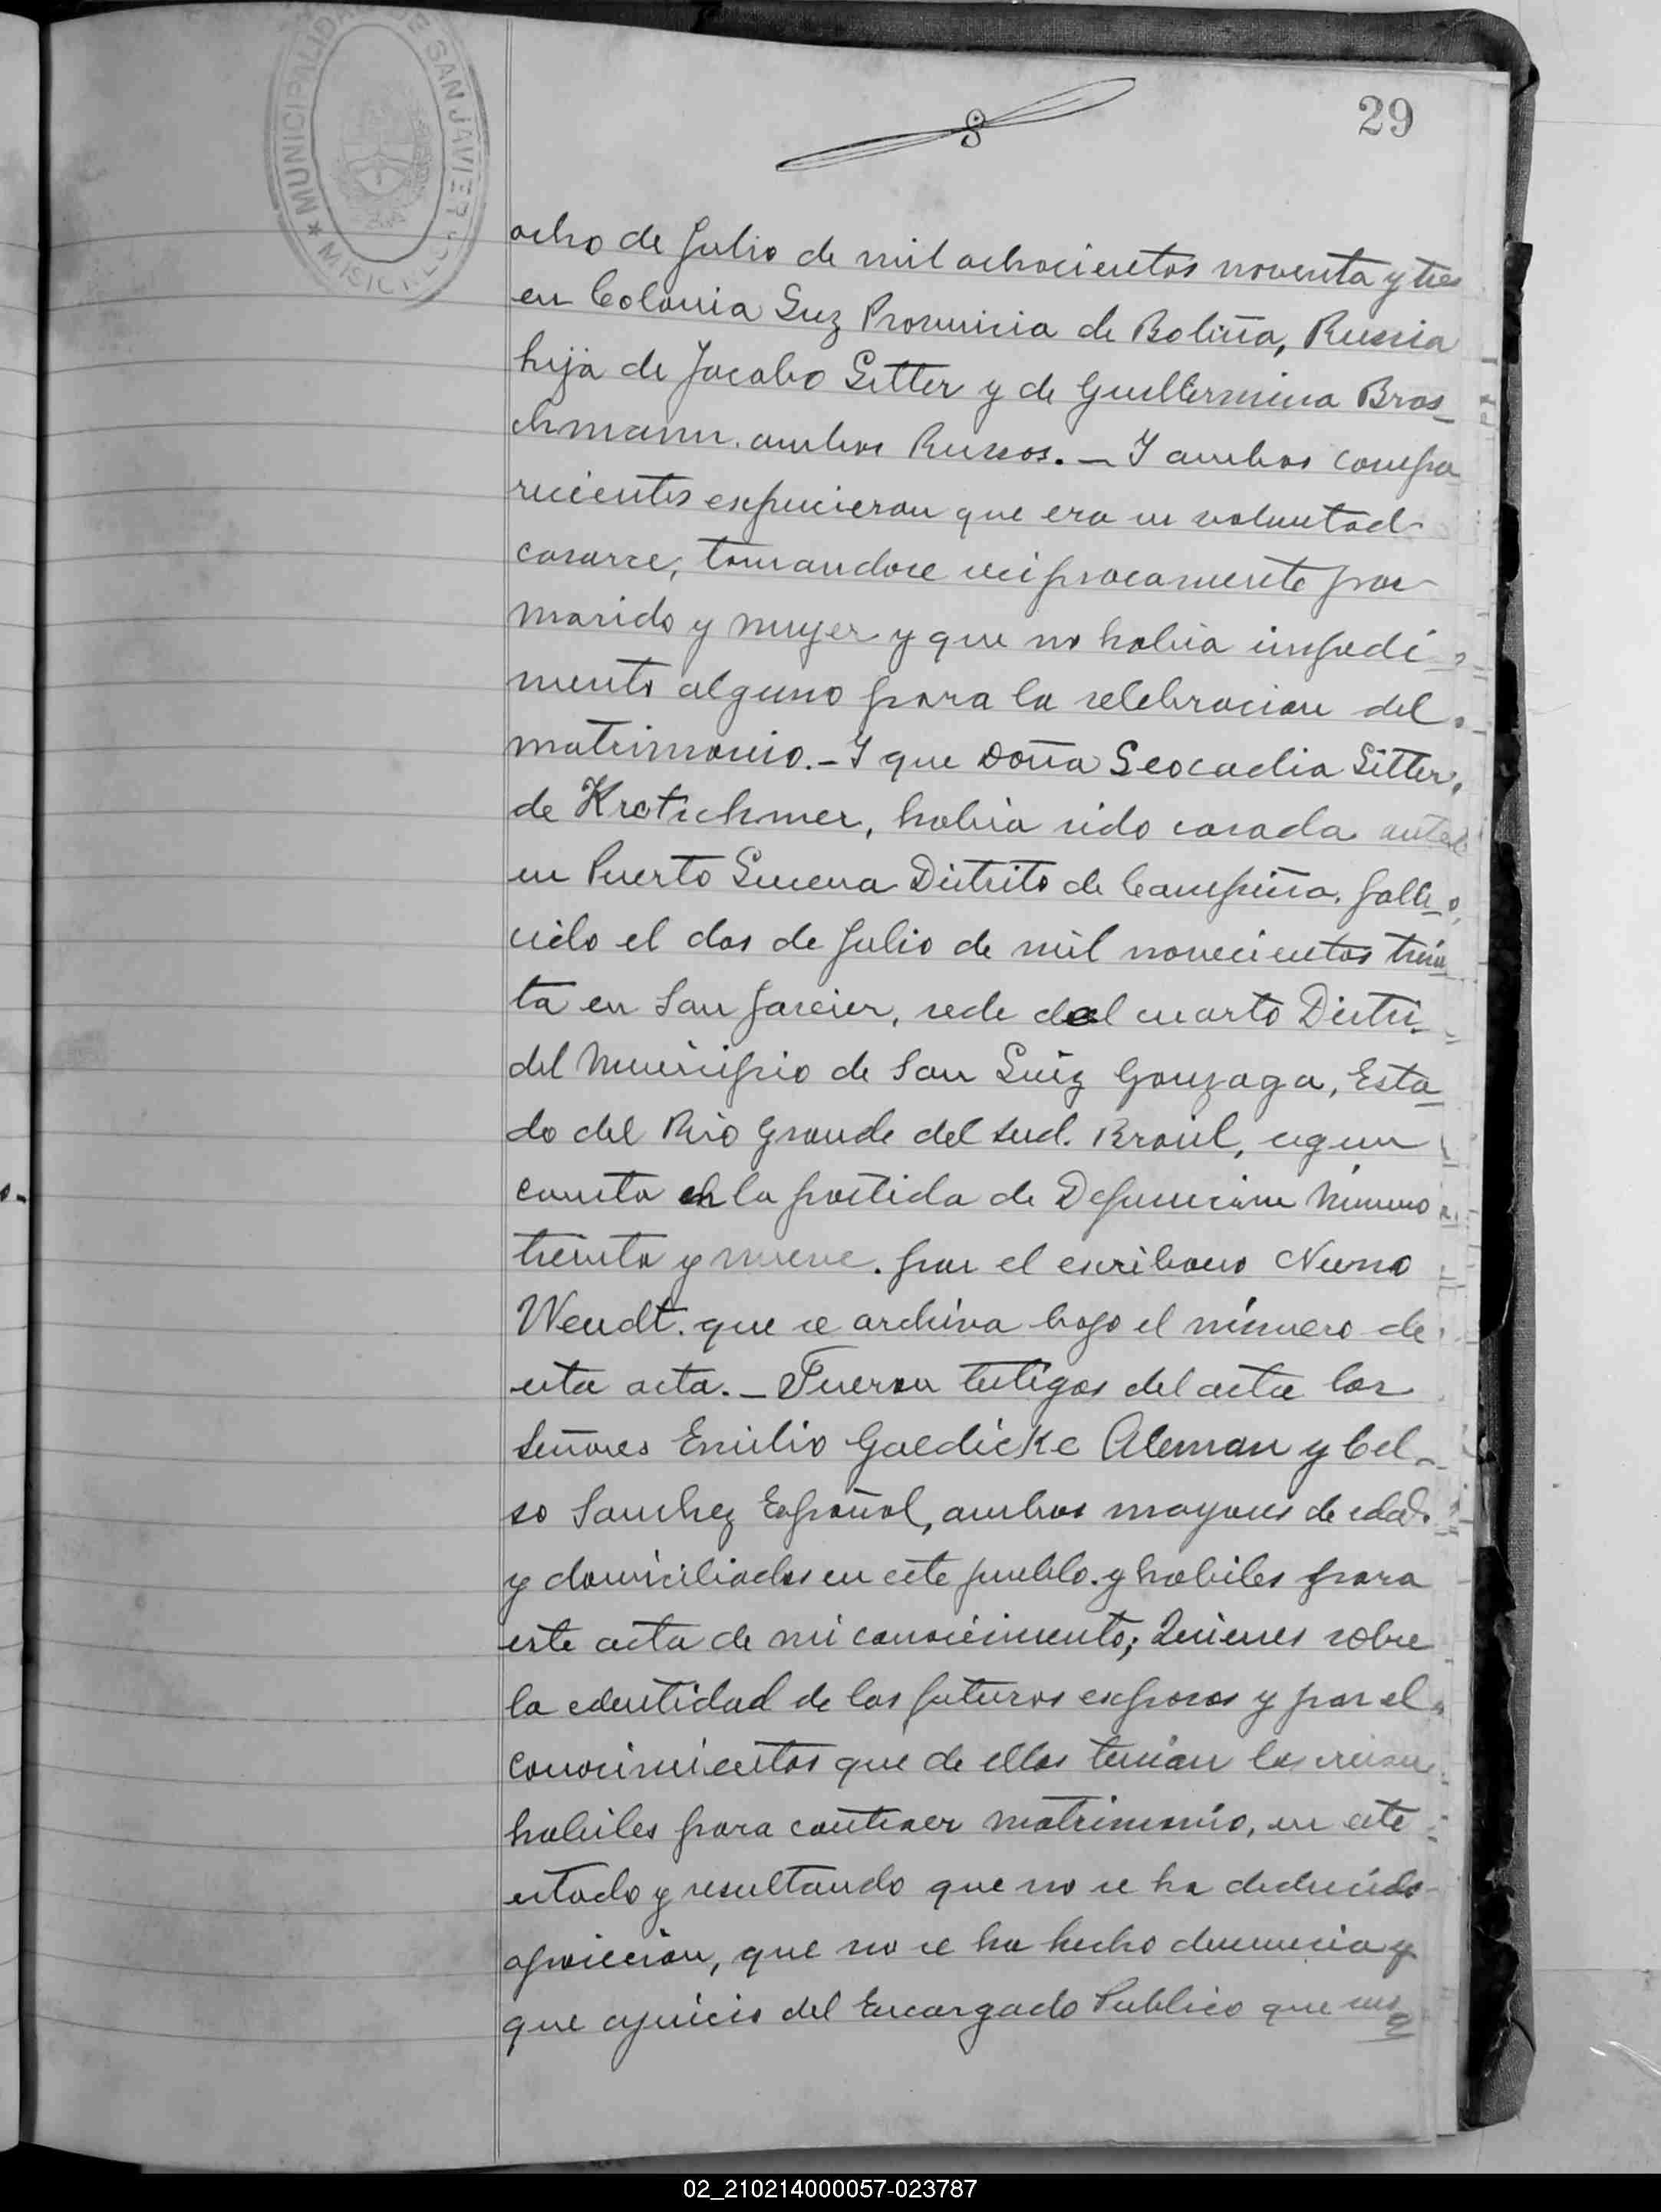 MUNICIPALIDAD DE SAN JAVIER
★ MISIONES
29
8
ocho de Julio de mil ochocientos noventa y tres
en Colonia Luz Provincia de Boliña, Russia
hija de Jacobo Litter y de Guillermina Bros_
chmann. ambos Russos. _ Y ambos compa
recientes espucieron que era su voluntad
casarse, tomandose reciprocamente por
marido y mujer y que no habia impedi
mento alguno para la selebracion del
matrimonio. - Y que Doña Leocadia Litter,
de Kretschmer, habia sido casada antes
en Puerto Lucena Distrito de Campiña. falle_
cido el dos de Julio de mil novecientos trein
ta en San Javier, sede del cuarto Distri_
del Municipio de San Luiz Gonzaga, Esta_
do del Rio Grande del Sud. Brasil, segun
consta en la partida de Defuncion Numero
treinta y nueve. por el escribano Nuno
Wendt. que se archiva bajo el número de
esta acta. _ Fueron testigos del acta los
Señores Emilio Gaedicke Aleman y Cel_
so Sanchez Español, ambos mayores de edad.
y domiciliados en este pueblo. y habiles para
este acta de mi conocimiento; Quienes sobre
la edentidad de los futuros esposos y por el
conocimientos que de ellos tenian los creian
habiles para contraer matrimonio, en este
estado y resultando que no se ha deducido
oposicion, que no se ha hecho denuncia y
que ajuicio del Encargado Publico que sus_
02_210214000057-023787